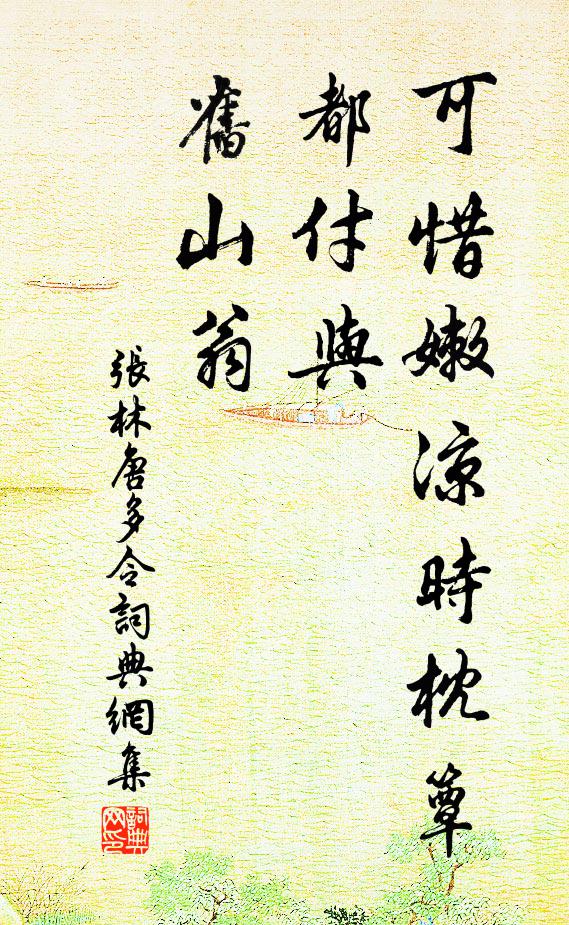 可惜嫩凉時枕簟
都付與
舊山翁
張林唐多令詞典網集
詞典網印